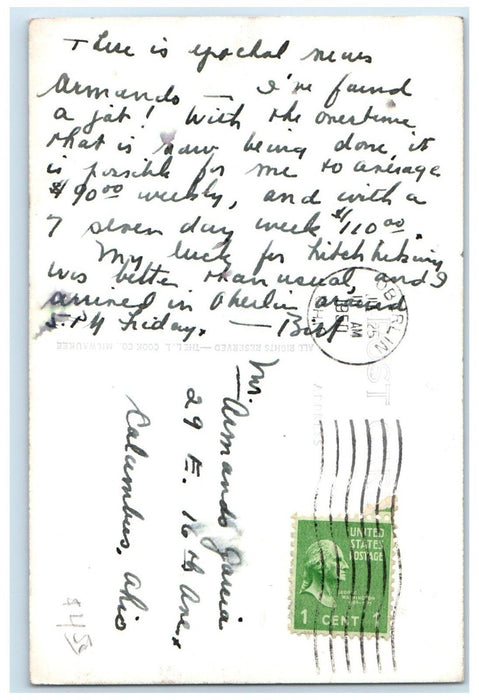 There is epochal news
Armando — I've found
a job! With the overtime
that is now being done, it
is possible for me to average
$90.00 weekly, and with a
7 seven day week $110.00.
My luck for hitchhiking
was better than usual, and I
arrived in Oberlin around
5 PM Friday. — Bill
ALL RIGHTS RESERVED — THE L. L. COOK CO., MILWAUKEE
POST
ADDRESS
OBERLIN
25
11 AM
1950
Mr. Armando Garcia
29 E. 16th Ave.
Columbus, Ohio
UNITED
STATES
POSTAGE
GEORGE
WASHINGTON
1 CENT 1